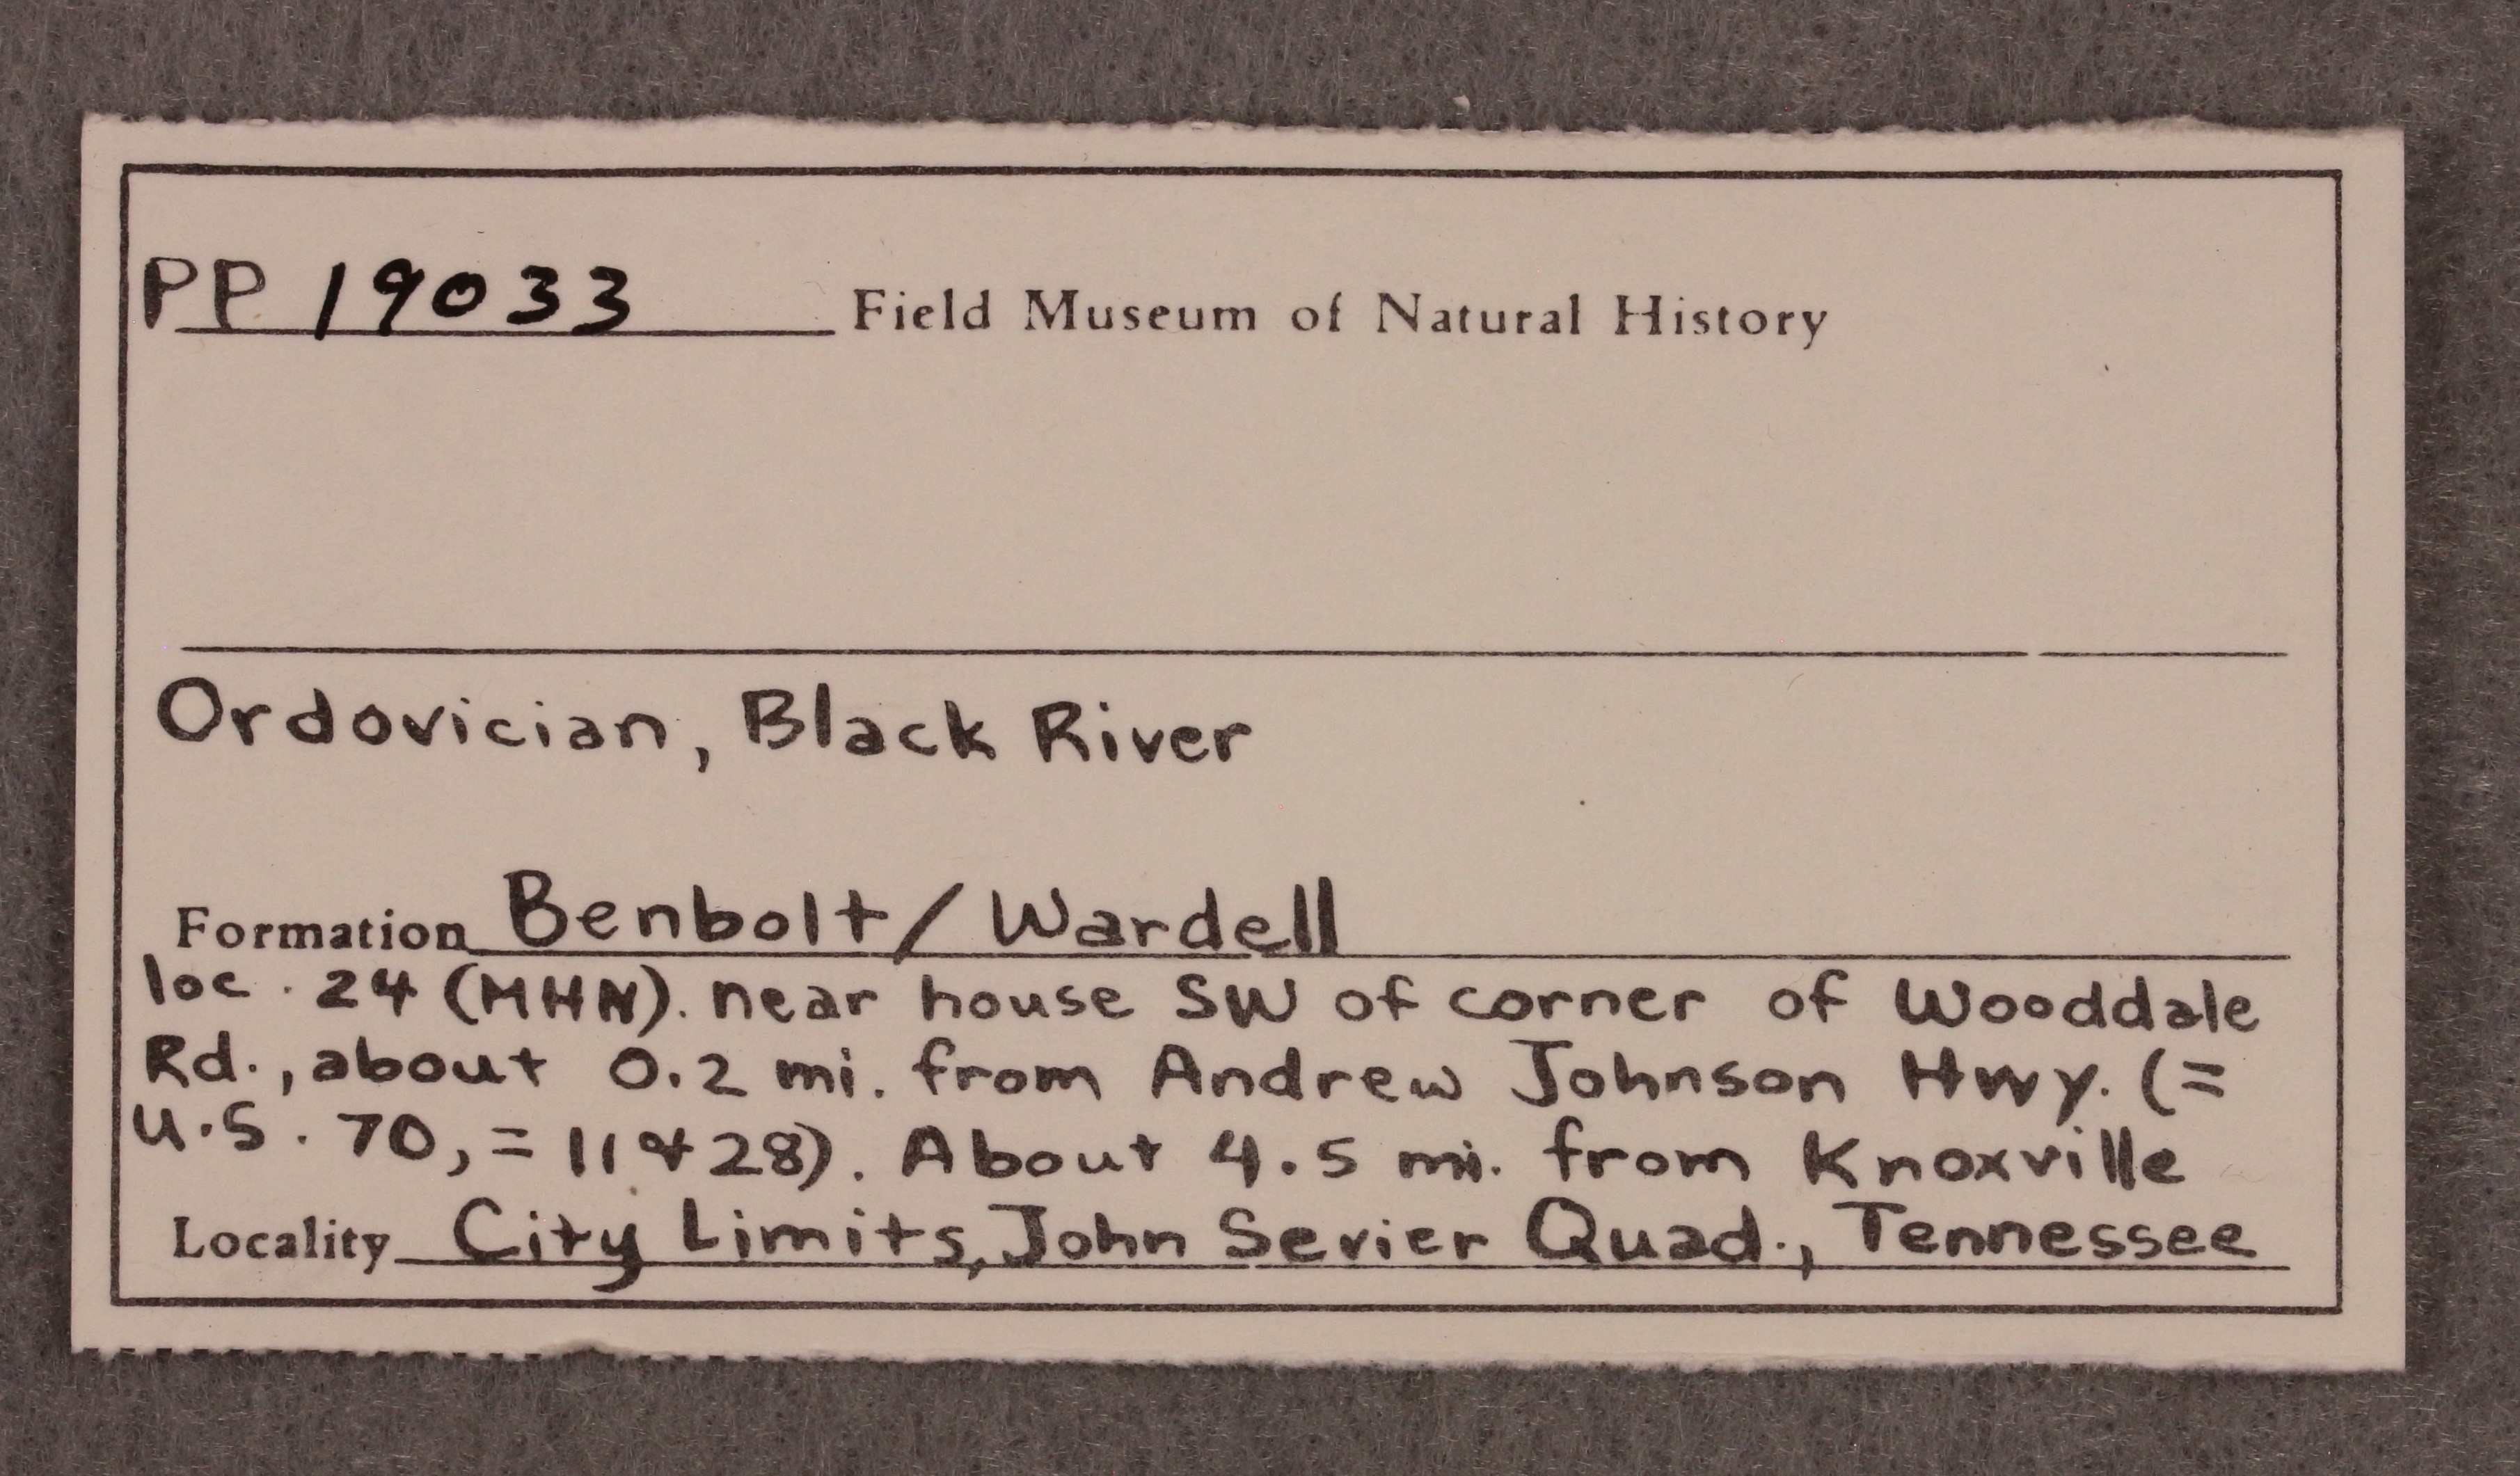 PP 19033 Field Museum of Natural History
Ordovician, Black River
Formation Benbolt/Wardell
loc. 24 (MHN). near house SW of corner of Wooddale
Rd., about 0.2 mi. from Andrew Johnson Hwy. (=
U.S. 70, = 11 & 28). About 4.5 mi. from Knoxville
Locality City Limits, John Sevier Quad., Tennessee